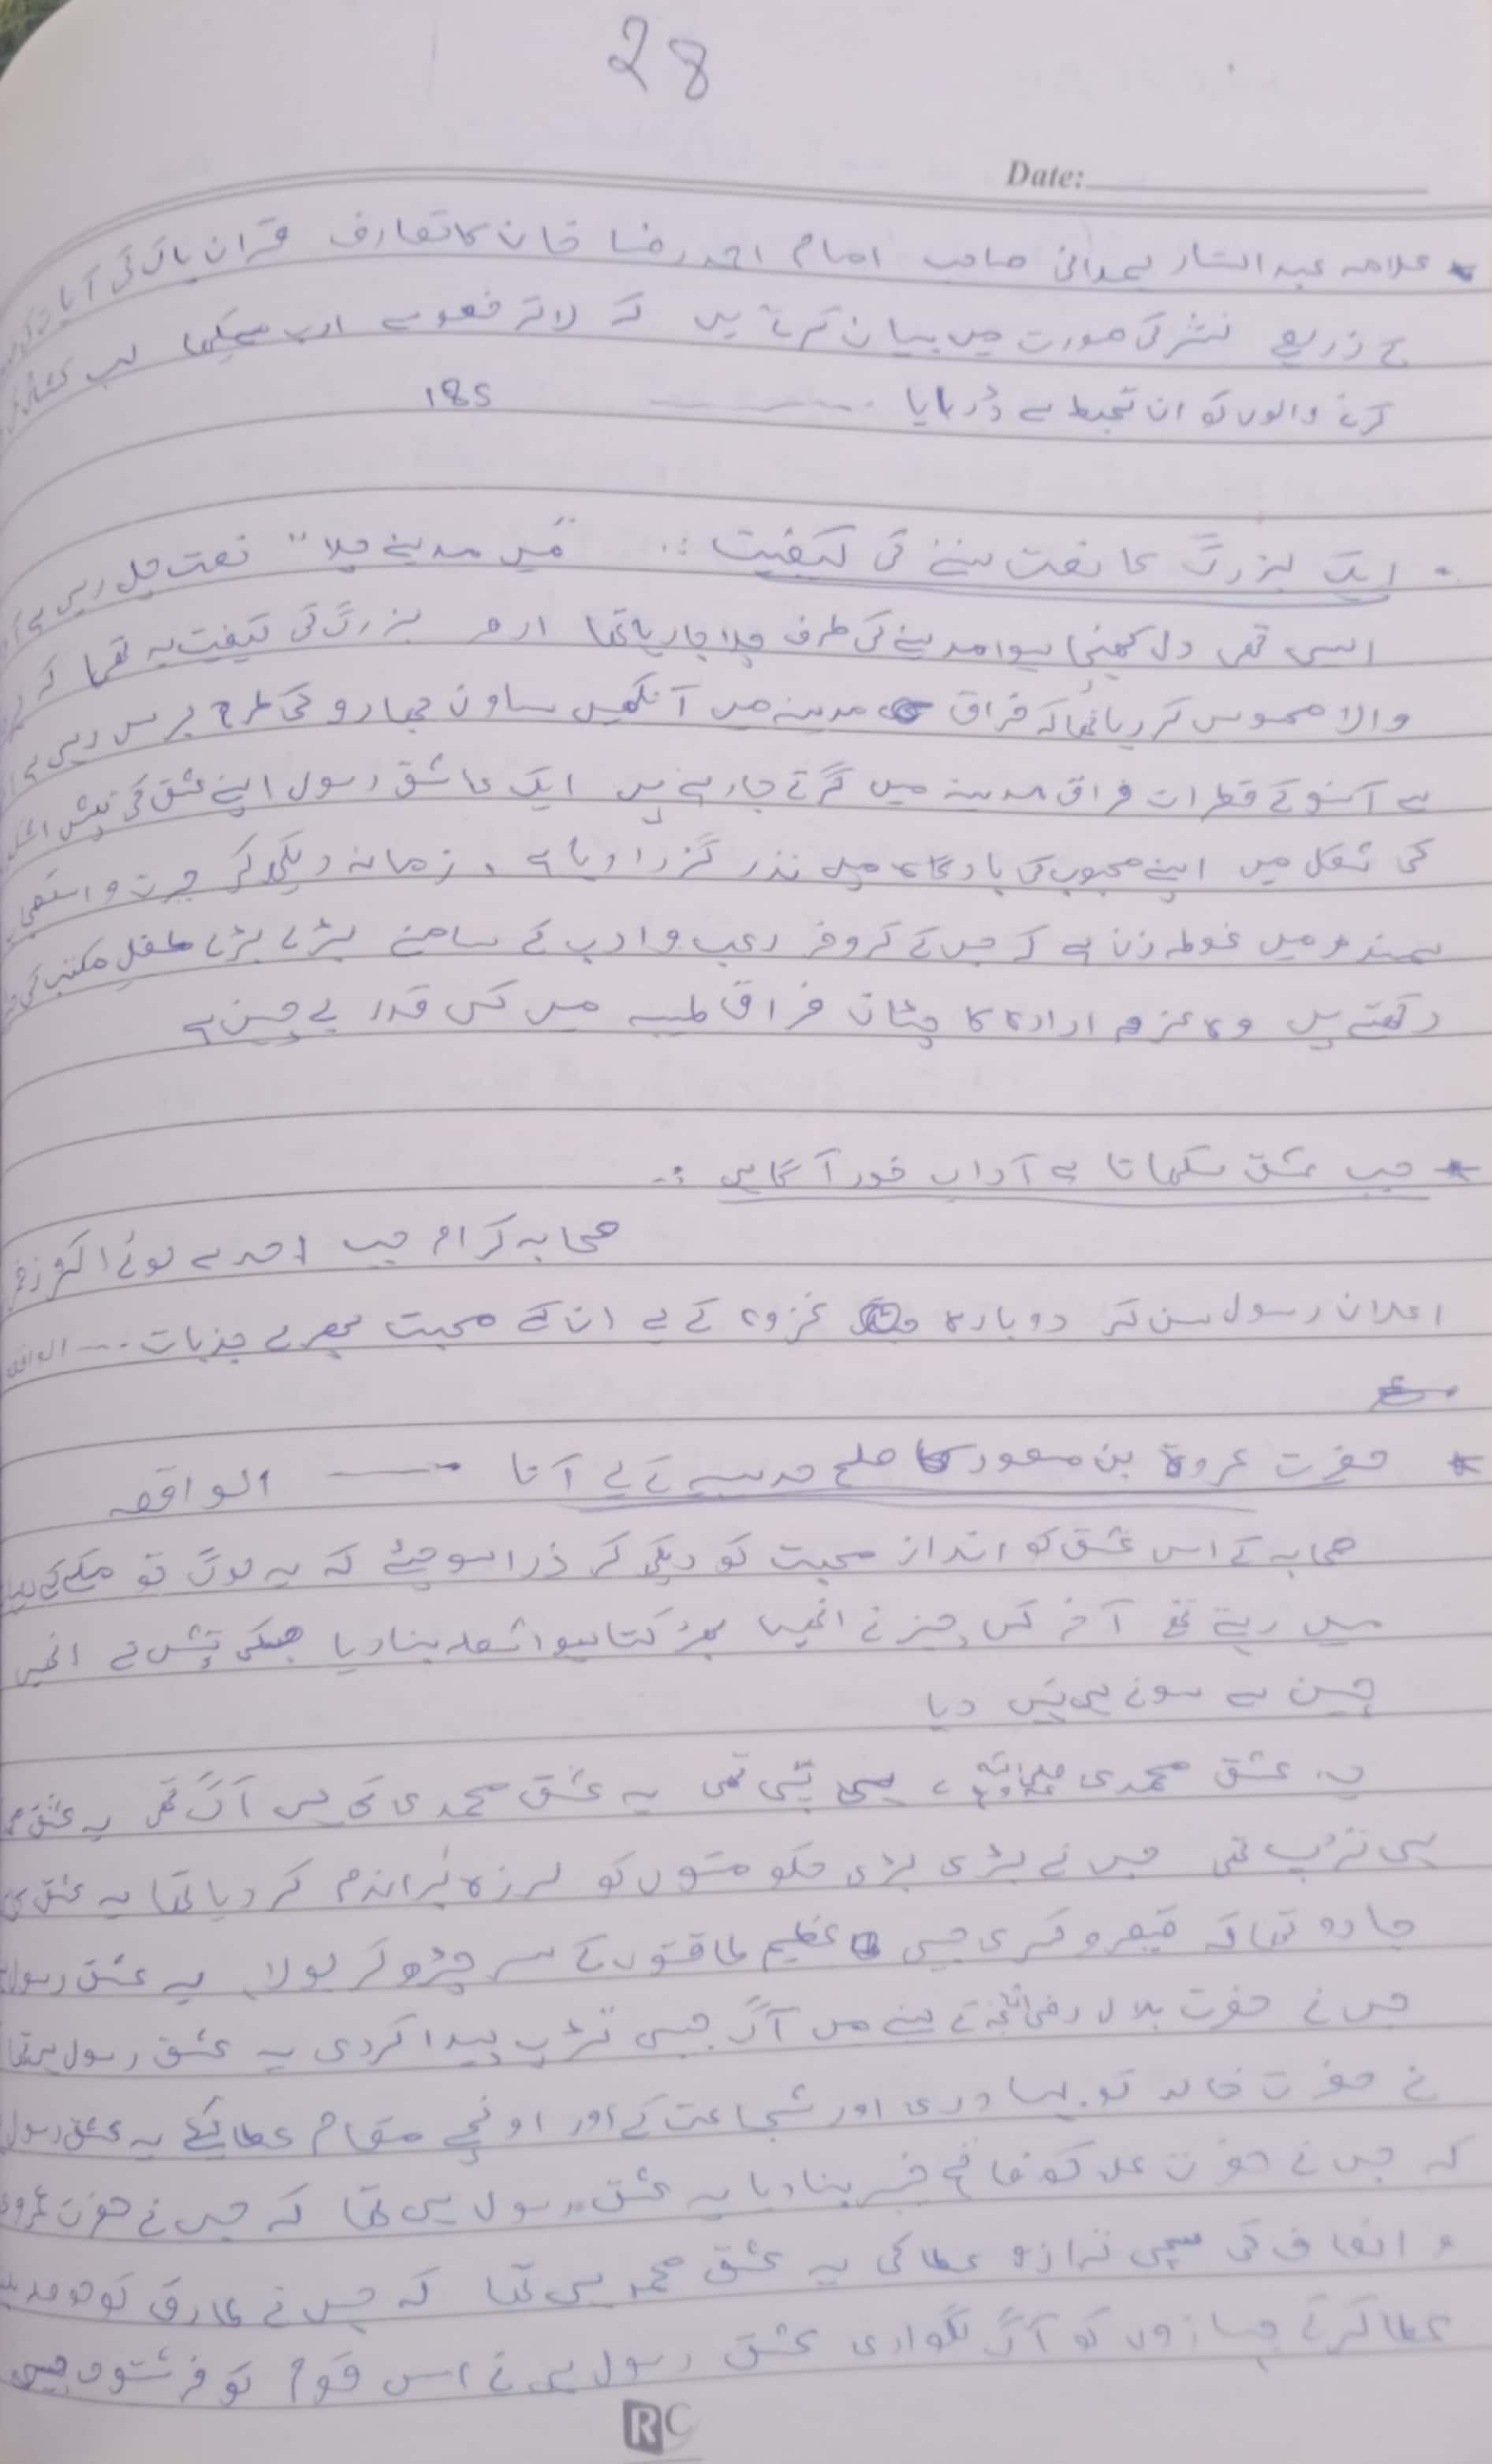 28
Date:
علامہ عبد الستار ہمدانی صاحب امام احمد رضا خان کا تعارف قران پاک کی آیات
کے ذریعے نشر کی صورت میں بیان کرتے ہیں کہ لاترفعو سے ادب سیکھا لب
کرنے والوں کو ان تحبط سے ڈرایا ۔۔۔۔۔ 185
ایک بزرگ کا نعت سننے کی کیفیت :. "میں مدینے چلا" نعت چل رہی ہے
ایسی تھی دل کھنچا ہوا مدینے کی طرف چلا جا رہا تھا ادھر بزرگ کی کیفیت یہ تھی کہ
والا محسوس کر رہا تھا کہ فراق مدینہ میں آنکھیں ساون بھادو کی طرح برس رہی ہے
سے آنسو کے قطرات فراق مدینہ میں گرتے جا رہے ہیں ایک عاشق رسول اپنے عشق کی تپش
کی شکل میں اپنے محبوب کی بارگاہ میں نذر گزار رہا ہے ۔ زمانہ دیکھ کر حیرت و
سمندر میں غوطہ زن ہے کہ جس کے کروفر رعب و ادب کے سامنے بڑے بڑے طفل مکتب کی
رکھتے ہیں وہ عزم ارادہ کا چٹان فراق طیبہ میں کس قدر بے چین ہے
جب عشق سکھاتا ہے آداب خود آگاہی :.
صحابہ کرام جب احد سے لوٹے اکثر زخمی
اعلان رسول سن کر دوبارہ غزوہ کے لے ان کے محبت بھرے جذبات ۔۔۔ الواقعہ
حضرت عروۃ بن مسعود کا صلح حدیبیہ کے لے آنا ۔۔۔ الواقعہ
صحابہ کے اس عشق کو انداز محبت کو دیکھ کر ذرا سوچئے کہ یہ لوگ تو مکے کی
میں رہتے تھے آخر کس چیز نے انھیں بھڑکتا ہوا شعلہ بنا دیا جسکی تپش نے انھیں
چین سے سونے ہی نہیں دیا
یہ عشق محمدی صلی اللہ علیہ وسلم، ہی تپش تھی یہ عشق محمدی کی ہی آگ تھی یہ عشق
ہی تڑپ تھی جس نے بڑی بڑی حکومتوں کو لرزہ براندم کر دیا تھا یہ عشق ہی
جادو تھا کہ قیصر و کسری جیسی عظیم طاقتوں کے سر چڑھ کر بولا۔ یہ عشق رسول
جس نے حضرت بلال رضی اللہ عنہ کے سینے میں آگ جیسی تڑپ پیدا کر دی یہ عشق رسول ہی تھا
نے حضرت خالد کو بہادری اور شجاعت کے اور اونچے مقام عطا کیے یہ عشق رسول
کہ جس نے حضرت علی کو فاتح خیبر بنا دیا یہ عشق رسول ہی تھا کہ جس نے حضرت عمر کو
و انصاف کی سچی ترازو عطا کی یہ عشق محمد ہی تھا کہ جس نے طارق کو حوصلہ
عطا کر کے جہازوں کو آگ لگوا دی عشق رسول ہی نے اس قوم کو فرشتوں جیسی
RC